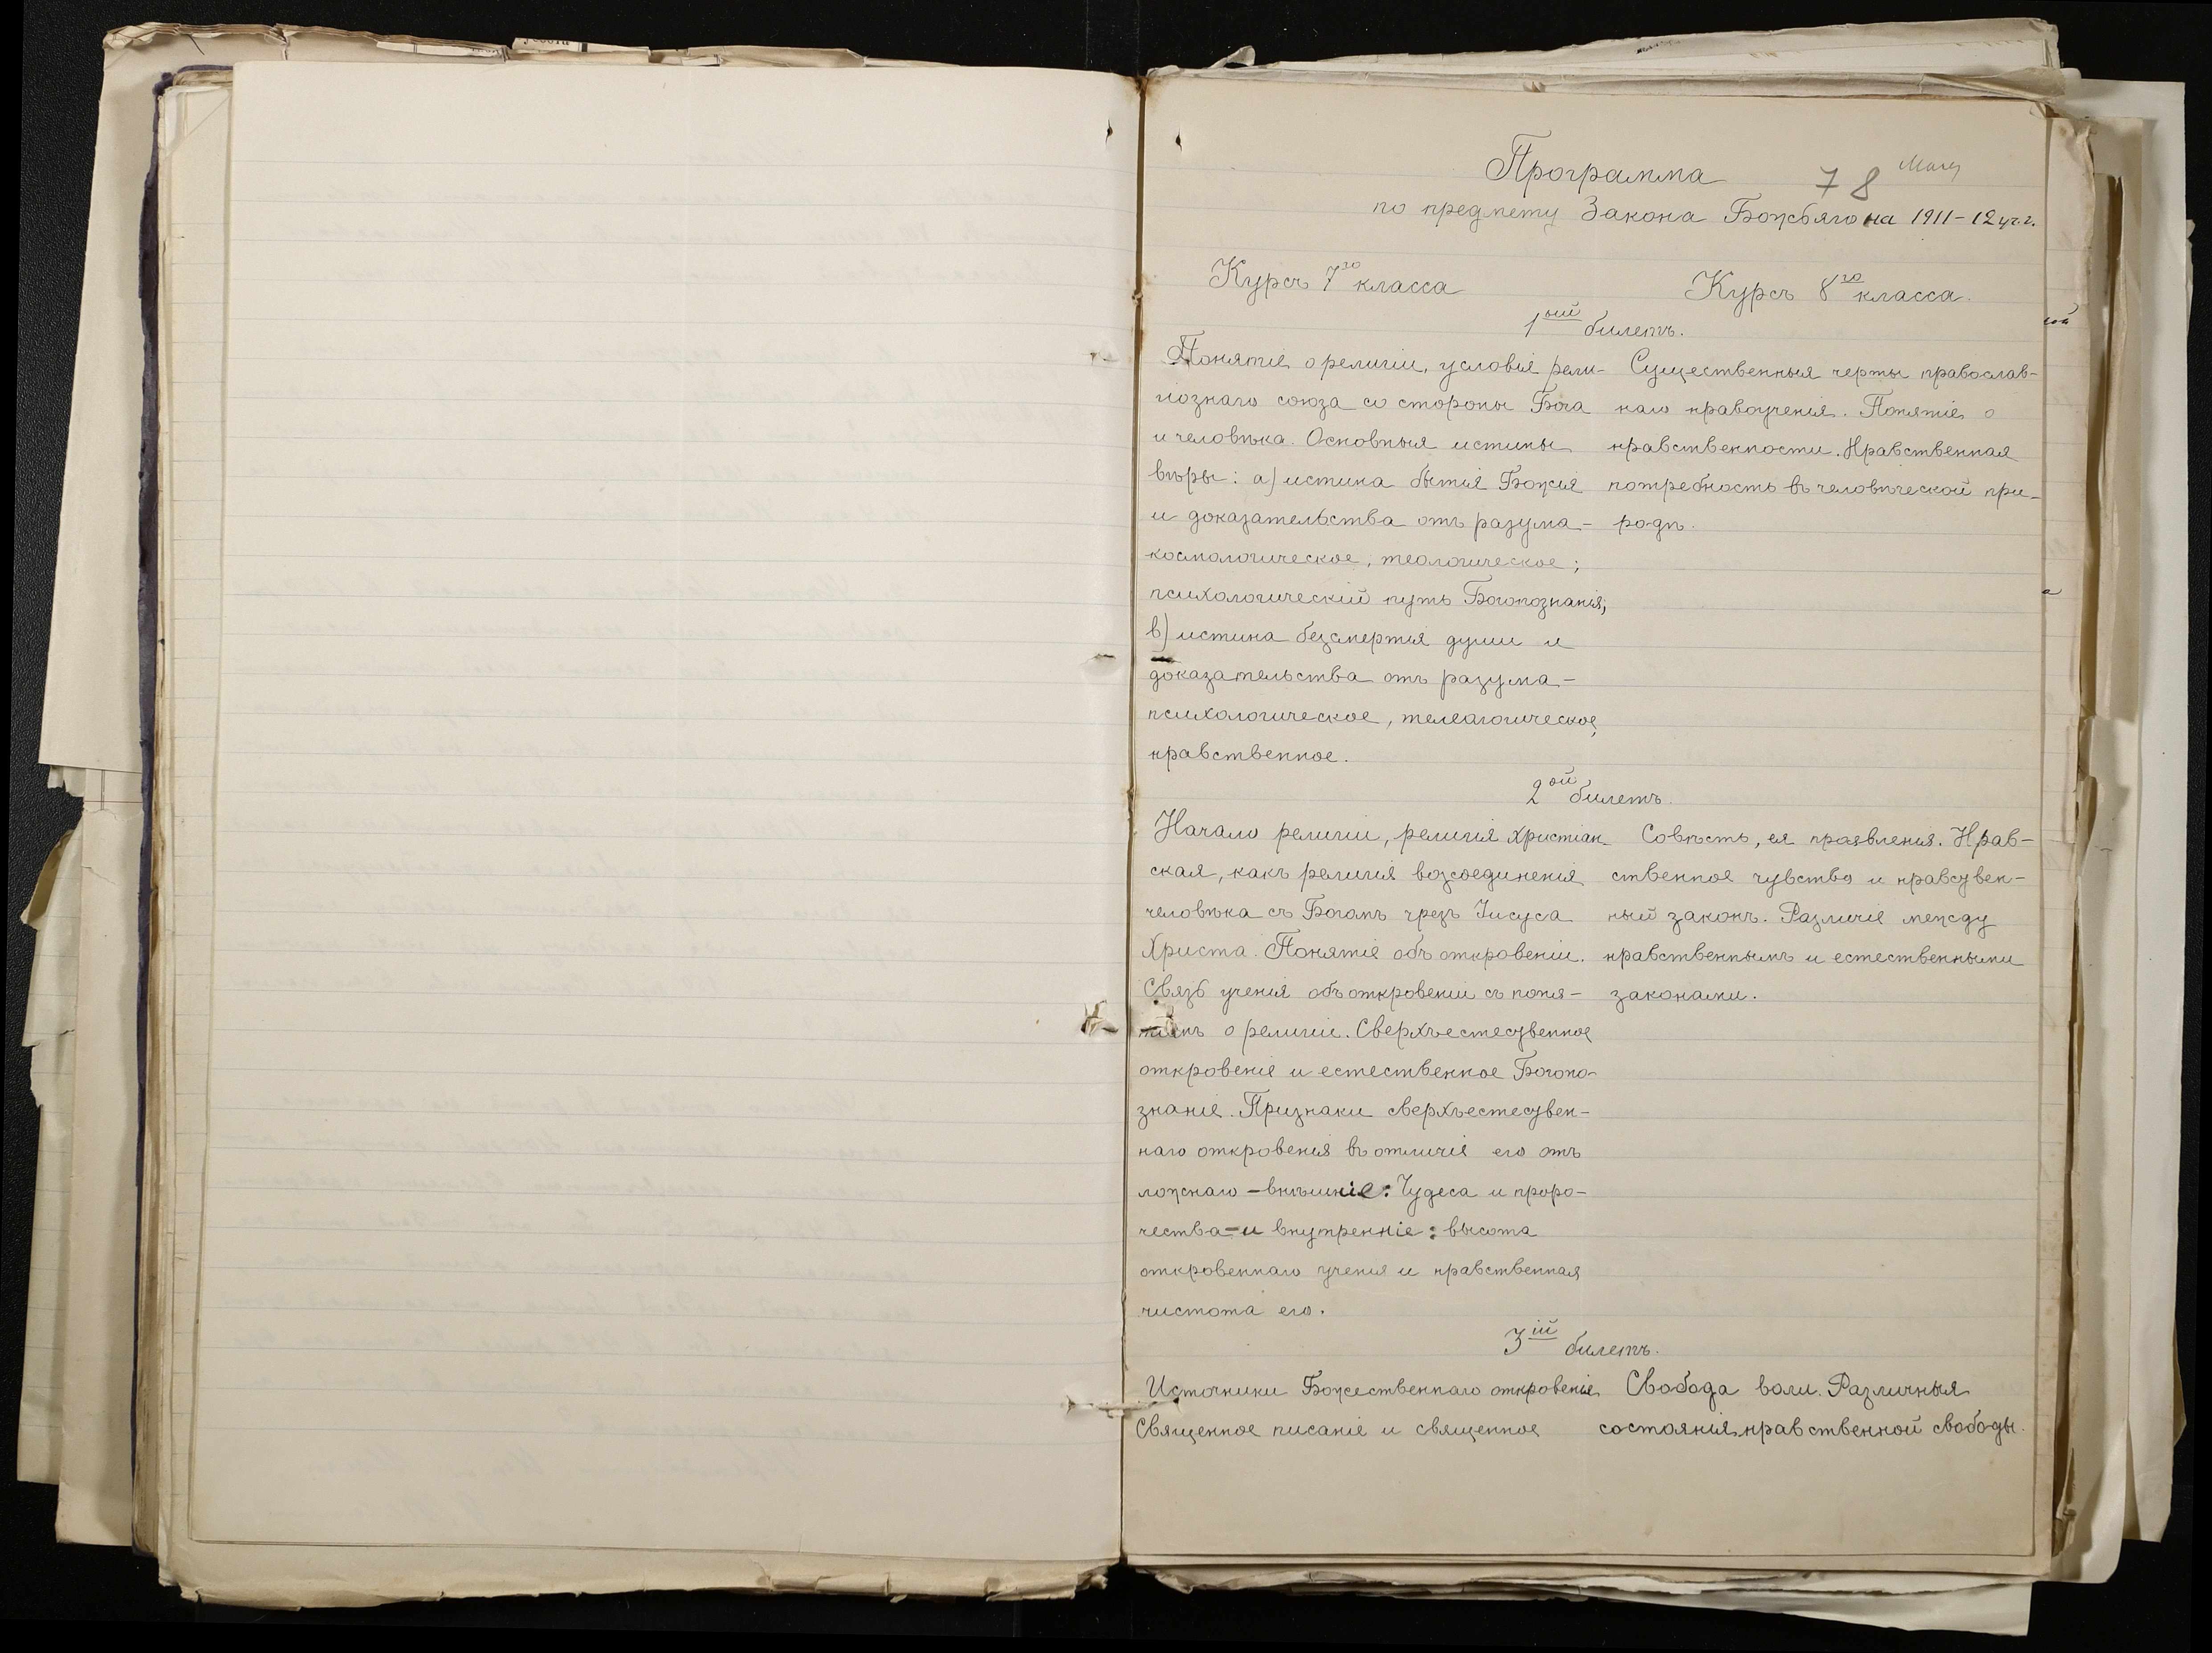 Программа
7 8
по предмету Закона Божьяго на 1911-12 уч. г.
Курсъ 7го класса
Курсъ 8го класса.
1ый билетъ.
Понятіе о религіи, условія рели-
гіознаго союза со стороны Бога
и человѣка. Основныя истины
вѣры: а) истина бытія Божія
и доказательства отъ разума -
космологическое, теологическое;
психологическій путь Богопознанія;
в) истина безсмертія души и
доказательства отъ разума -
психологическое, телеалогическое,
нравственное.
Существенныя черты православ-
наго нравоученія. Понятіе о
нравственности. Нравственная
потребность въ человѣческой при-
родѣ.
2ой билетъ.
Начало религіи, религія христіан-
ская, какъ религія возсоединенія
человѣка съ Богомъ чрезъ Іисуса
Христа. Понятіе объ откровеніи.
Связь ученія объ откровеніи съ поня-
тіемъ о религіи. Сверхъестественное
откровеніе и естественное Богопо-
знаніе. Признаки сверхъестествен-
наго откровенія въ отличіе его отъ
ложнаго - внѣшніе: Чудеса и проро-
чества - и внутренніе: высота
откровеннаго ученія и нравственная
чистота его.
Совѣсть, ея проявленія. Нрав-
ственное чувство и нравствен-
ный законъ. Различіе между
нравственнымъ и естественными
законами.
3ій билетъ.
Источники Божественнаго откровенія
Священное писаніе и священное
Свобода воли. Различныя
состоянія нравственной свободы.